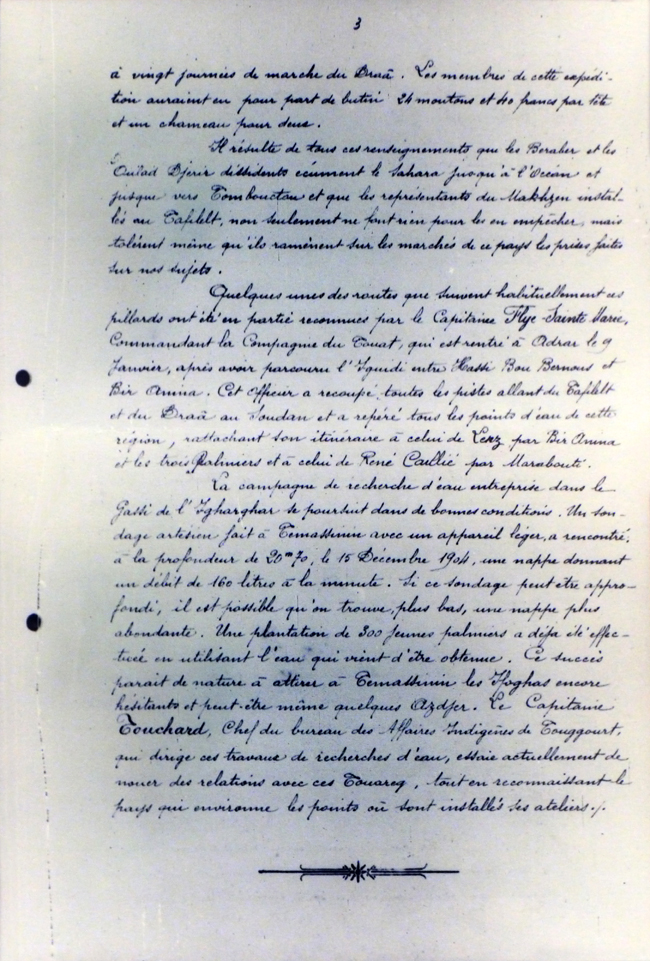 3
à vingt journées de marche du Draâ. Les membres de cette expédi-
tion auraient eu pour part de butin 24 moutons et 40 francs par tête
et un chameau pour deux.
Il résulte de tous ces renseignements que les Beraber et les
Oulad Djerir dissidents écument le Sahara jusqu'à l'Océan et
jusque vers Tombouctou et que les représentants du Makhzen instal-
lés au Tafilelt, non seulement ne font rien pour les en empêcher, mais
tolèrent même qu'ils ramènent sur les marchés de ce pays les prises faites
sur nos sujets.
Quelques unes des routes que suivent habituellement ces
pillards ont été en partie reconnues par le Capitaine Flye-Sainte Marie,
Commandant la Compagnie du Touat, qui est rentré à Adrar le 9
Janvier, après avoir parcouru l'Iguidi entre Hassi Bou Bernous et
Bir Amina. Cet officier a recoupé toutes les pistes allant du Tafilelt
et du Draâ au Soudan et a repéré tous les points d'eau de cette
région, rattachant son itinéraire à celui de Lenz par Bir Amina
et les trois Palmiers et à celui de René Caillié par Marabouti.
La campagne de recherche d'eau entreprise dans le
Gassi de l'Igharghar se poursuit dans de bonnes conditions. Un son-
dage artésien fait à Temassinin avec un appareil léger, a rencontré,
à la profondeur de 20m70, le 15 Décembre 1904, une nappe donnant
un débit de 160 litres à la minute. Si ce sondage peut être appro-
fondi, il est possible qu'on trouve, plus bas, une nappe plus
abondante. Une plantation de 300 jeunes palmiers a déjà été effec-
tuée en utilisant l'eau qui vient d'être obtenue. Ce succès
parait de nature à attirer à Temassinin les Ifoghas encore
hésitants et peut-être même quelques Azdjer. Le Capitaine
Touchard, Chef du bureau des Affaires Indigènes de Touggourt,
qui dirige ces travaux de recherches d'eau, essaie actuellement de
nouer des relations avec ces Touareg, tout en reconnaissant le
pays qui environne les points où sont installés ses ateliers./.